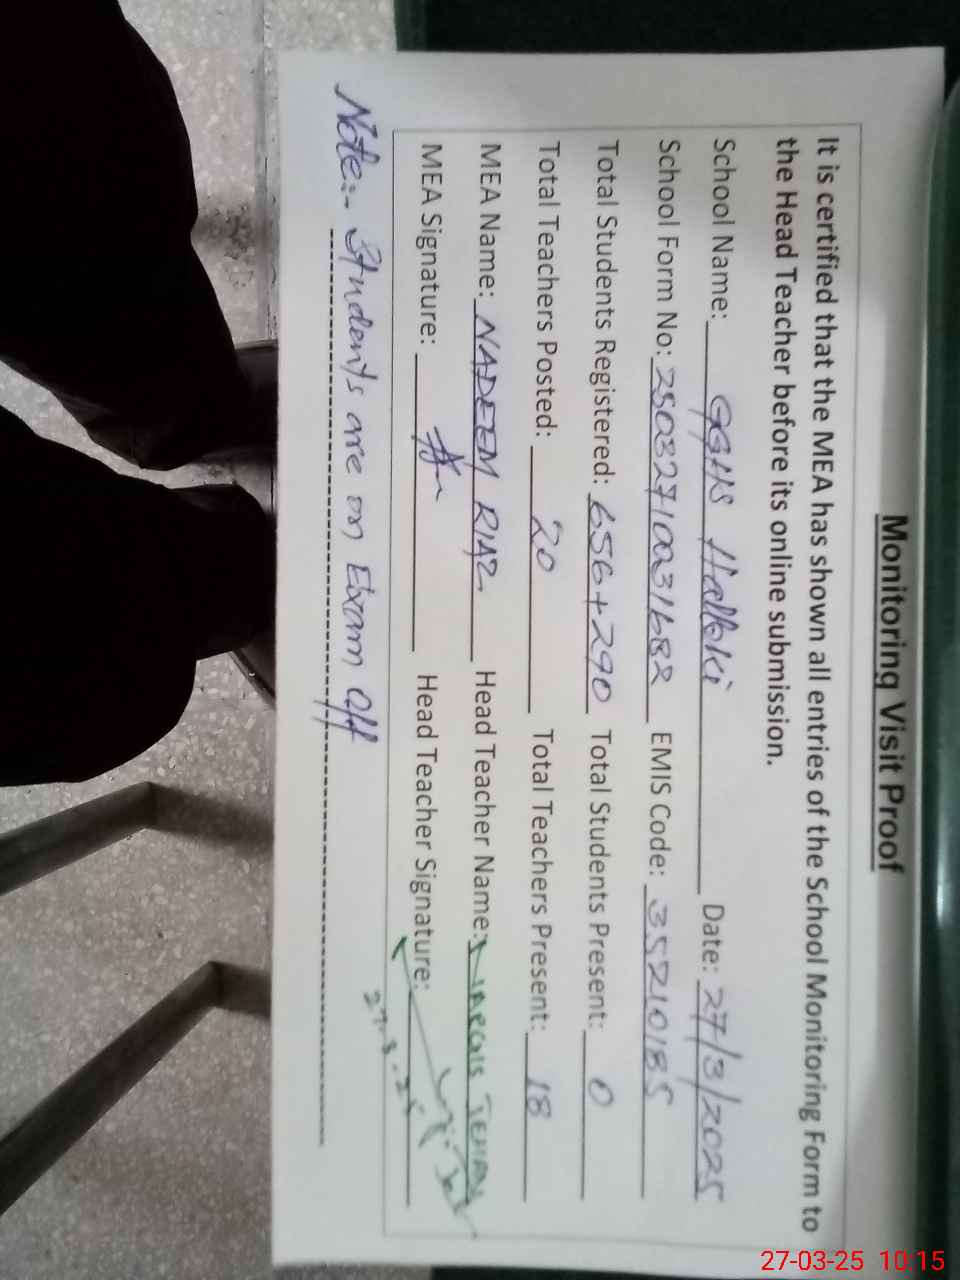 Monitoring Visit Proof
It is certified that the MEA has shown all entries of the School Monitoring Form to
the Head Teacher before its online submission.
School Name: GGHS Halloki Date: 27/3/2025
School Form No: 25032710031682 EMIS Code: 35210185
Total Students Registered: 656+290 Total Students Present: 0
Total Teachers Posted: 20 Total Teachers Present: 18
MEA Name: NADEEM RIAZ Head Teacher Name: NARGIS
MEA Signature: Head Teacher Signature:
27.3.25
Note:- Students are on Exam off
27-03-25 10:15